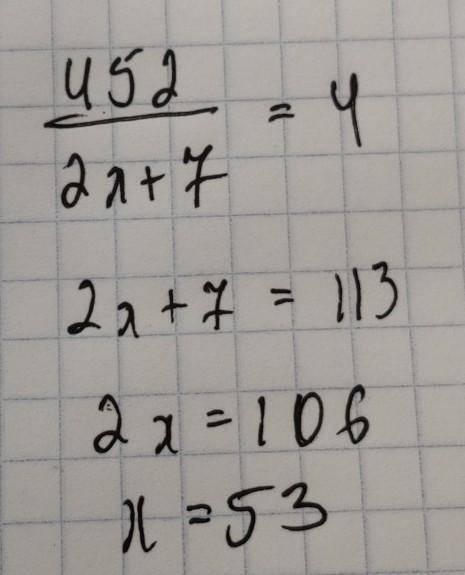 452/(2x+7) = 4
2x+7 = 113
2x = 106
x = 53